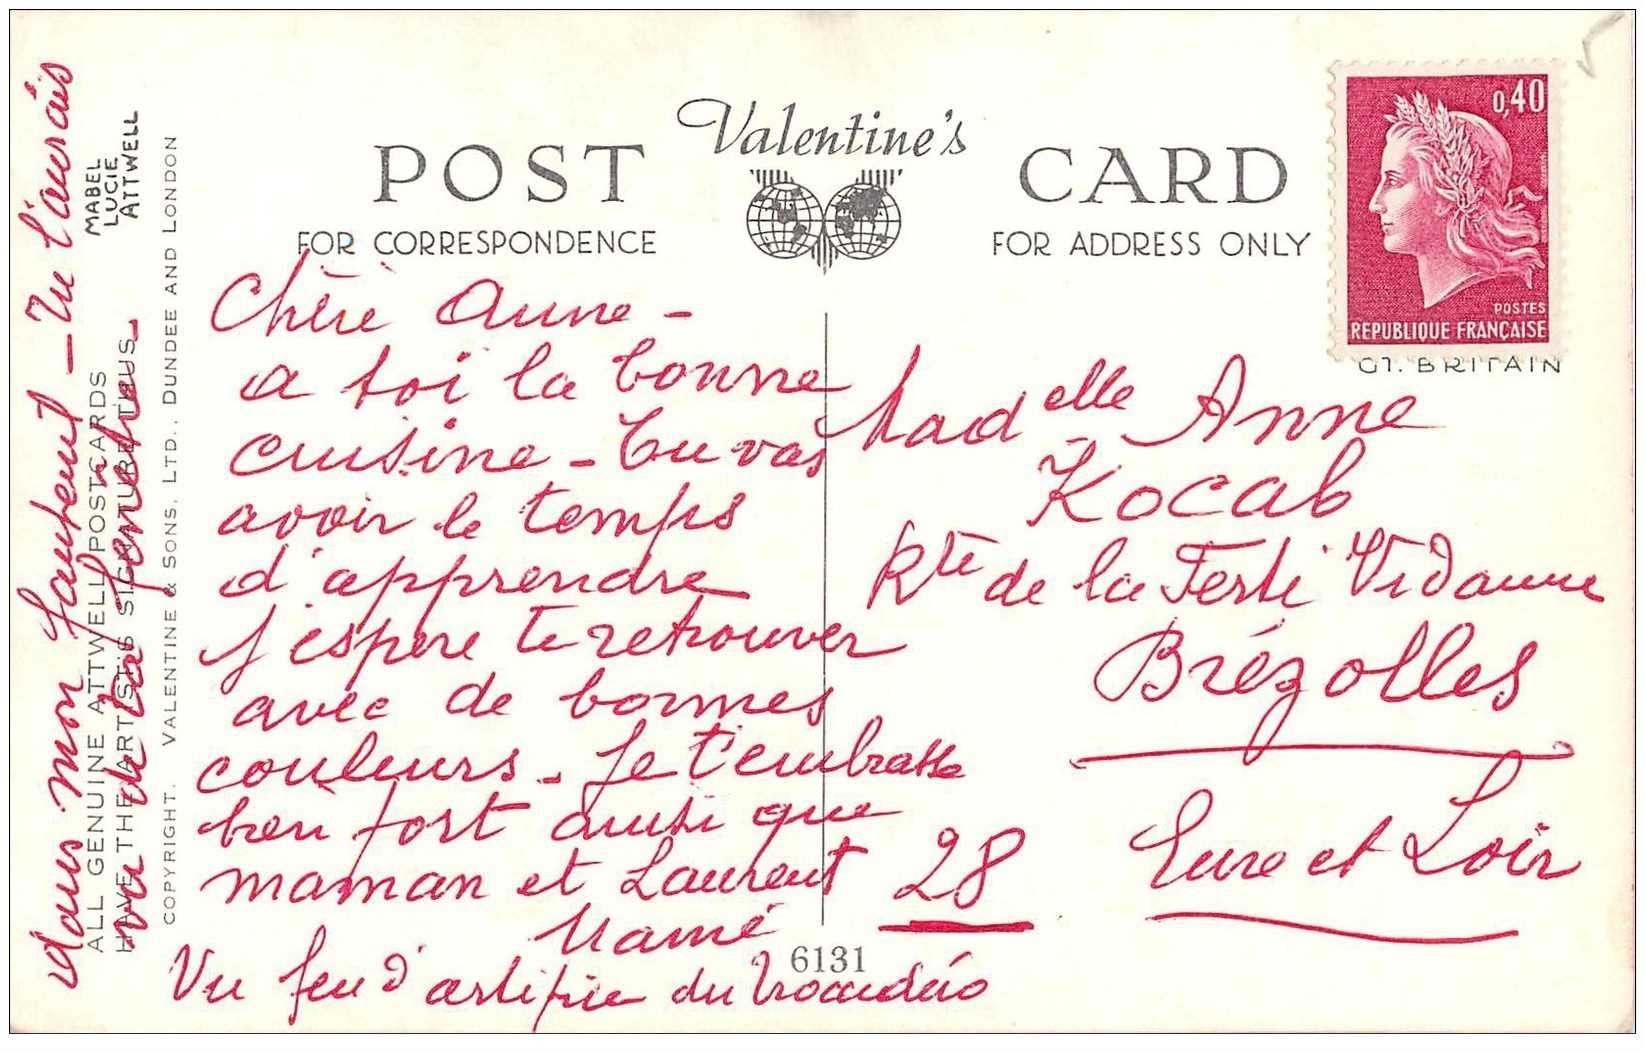 Valentine's
POST CARD
FOR CORRESPONDENCE
FOR ADDRESS ONLY
0,40
POSTES
REPUBLIQUE FRANÇAISE
GT. BRITAIN
Chère Anne -
a toi la bonne
cuisine - Tu vas
avoir le temps
d'apprendre
J'espère te retrouver
avec de bonnes
couleurs - Je t'embrasse
bien fort ainsi que
maman et Laurent
Mamé
Vu feu d'artifice du Trocadéro
dans mon fauteuil - Tu l'aurais
vu de ta fenêtre -
Madelle Anne
Kocab
Rte de la Ferté Vidame
Brézolles
28 Eure et Loir
6131
MABEL
LUCIE
ATTWELL
ALL GENUINE ATTWELL POSTCARDS
HAVE THE ARTIST'S SIGNATURE THUS
COPYRIGHT. VALENTINE & SONS, LTD., DUNDEE AND LONDON